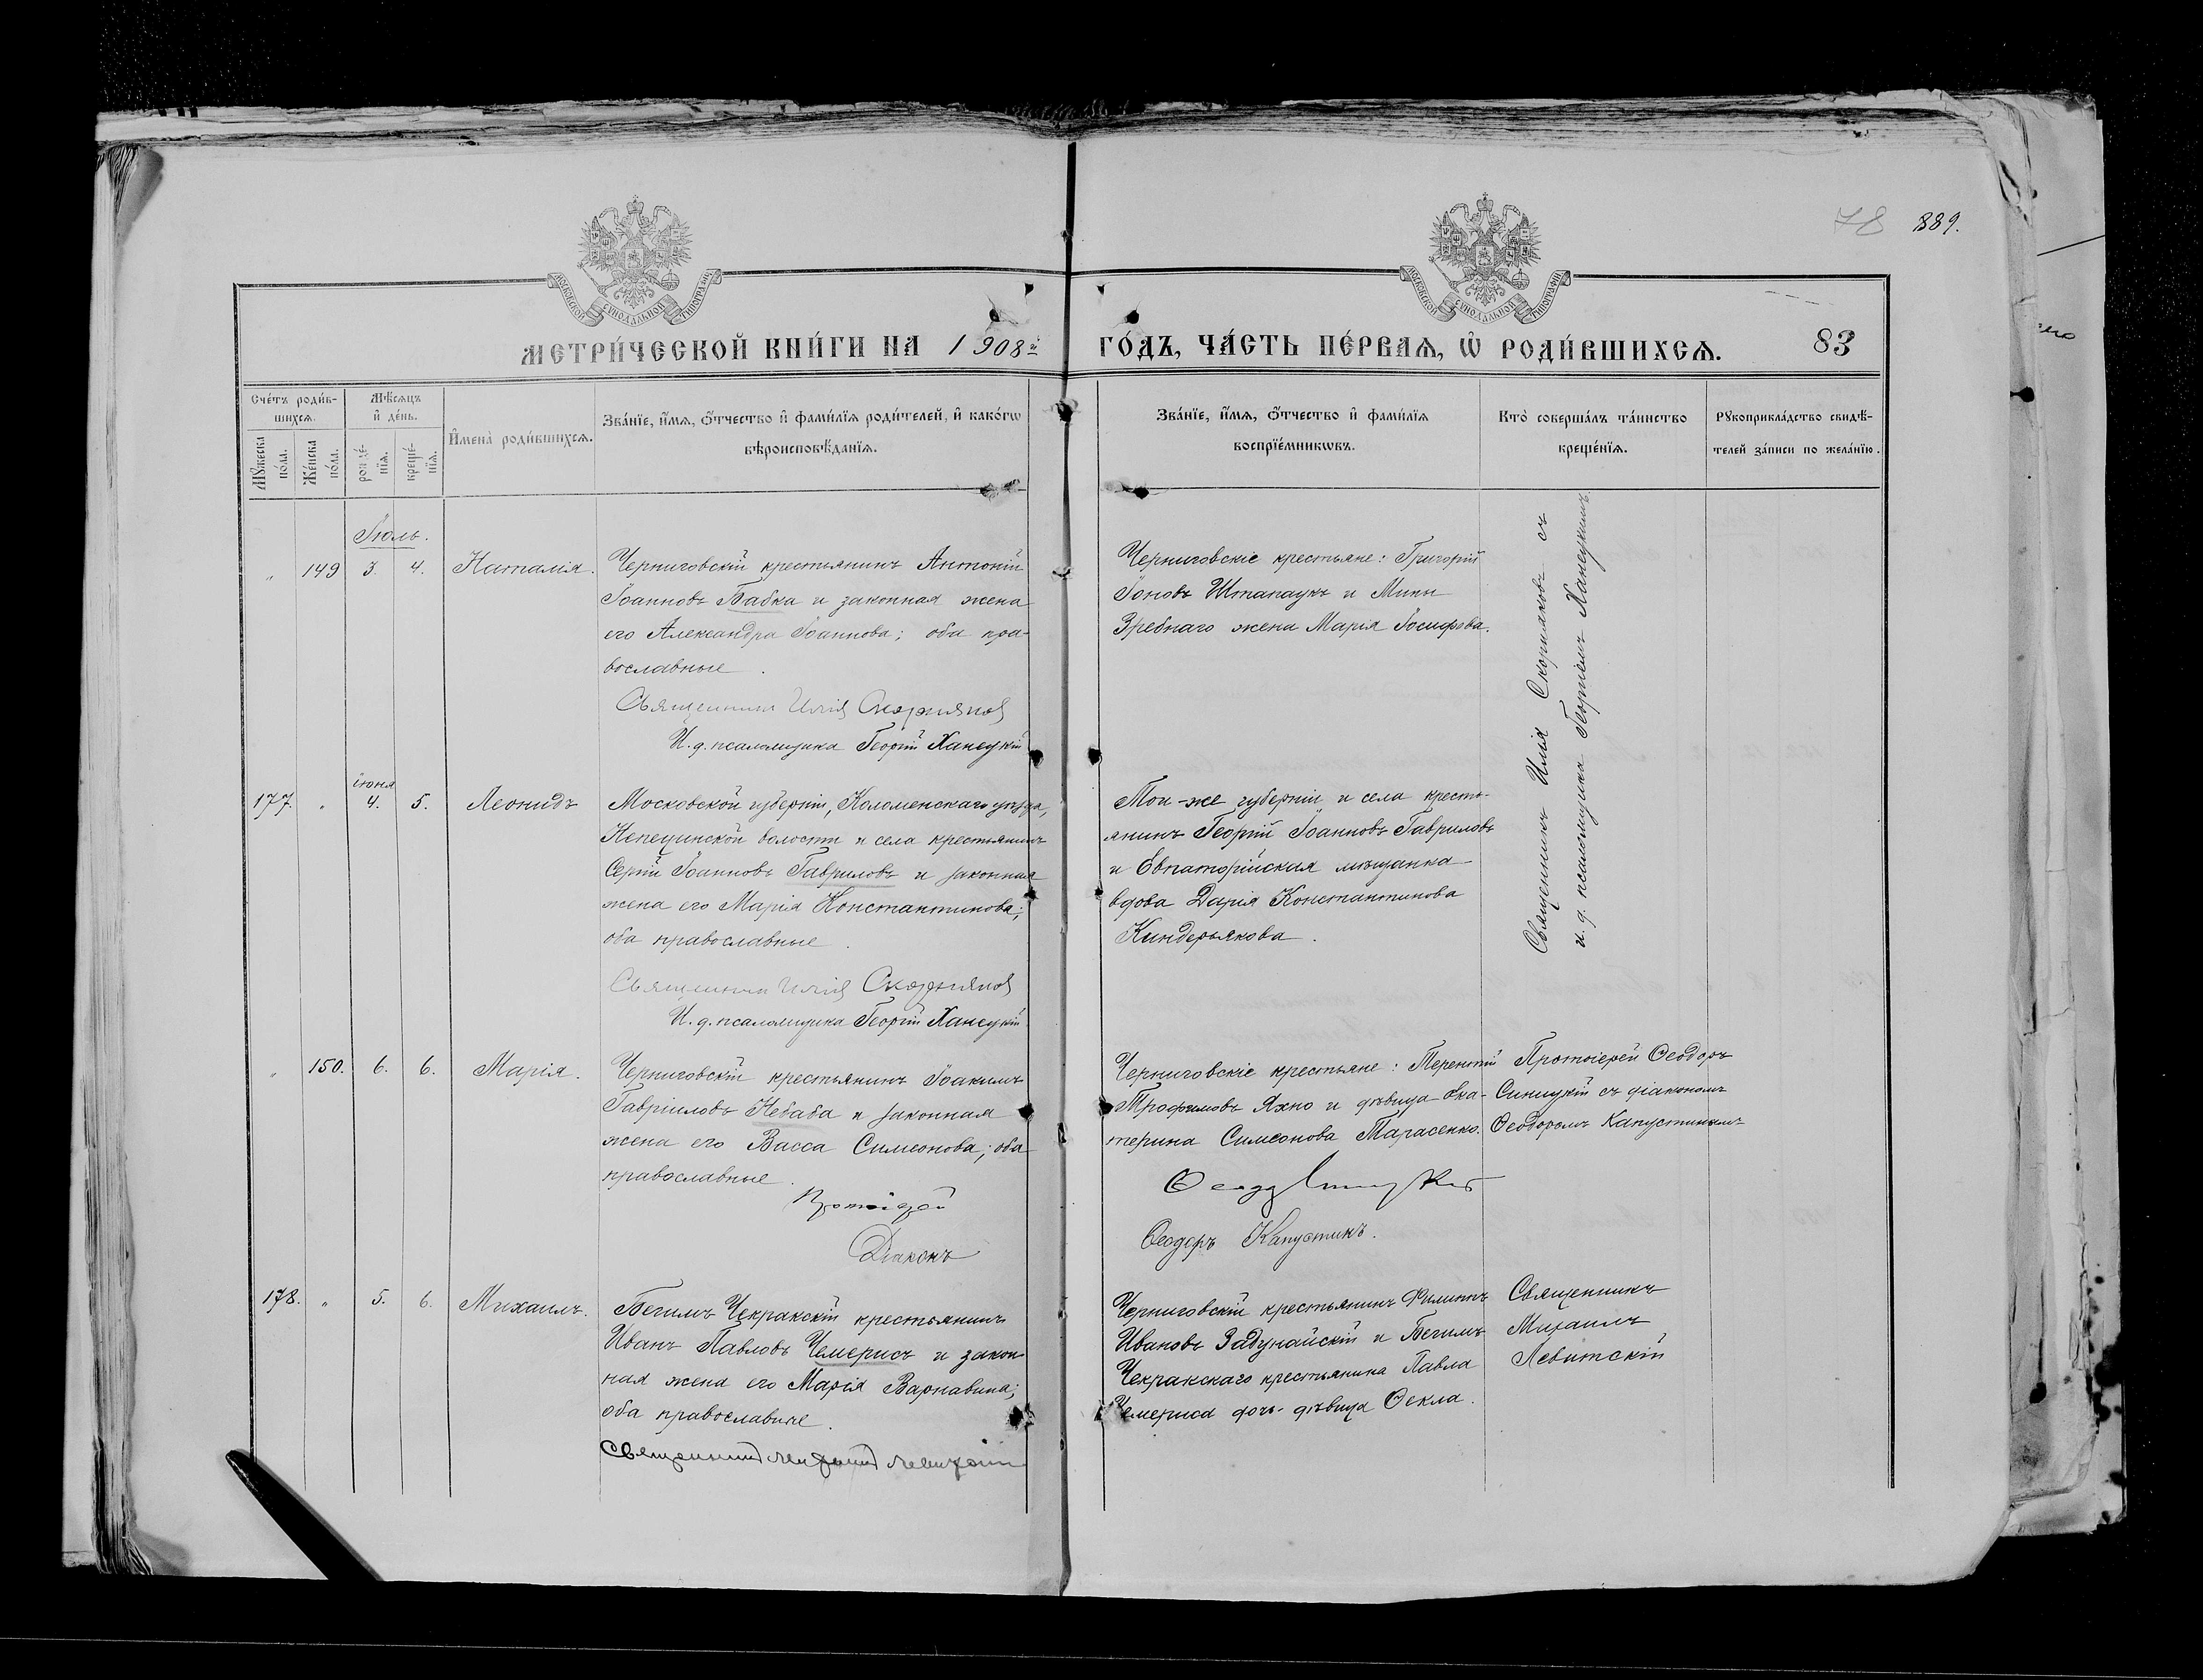 78 889.
МОСКОВСКОЙ СѴНОДАЛЬНОЙ ТИПОГРАФІИ
МОСКОВСКОЙ СѴНОДАЛЬНОЙ ТИПОГРАФІИ
МЕТРИ́ЧЕСКОЙ КНИ́ГИ НА 1908й ГО́ДЪ, ЧА́СТЬ ПЕ́РВАѦ, Ѡ҆ РОДИ́ВШИХСѦ. 83
Сче́тъ роди́в-
шихсѧ.
Мꙋ́жеска
по́ла.
Же́нска
по́ла.
Мѣ́сѧцъ
и҆ де́нь.
рожде́-
нїѧ.
креще́-
нїѧ.
И҆мена̀ роди́вшихсѧ.
Зва́нїе, и҆́мѧ, ѻ҆́тчество и҆ фами́лїѧ роди́телей, и҆ како́гѡ
вѣроисповѣ́данїѧ.
Зва́нїе, и҆́мѧ, ѻ҆́тчество и҆ фами́лїѧ
воспрїе́мникѡвъ.
Кто̀ соверша́лъ та́инство
креще́нїѧ.
Рꙋкоприкла́дство свидѣ́-
телей за́писи по жела́нїю.
Іюль.
" 149 3. 4. Наталія.
Черниговскій крестьянинъ Антоній
Іоанновъ Бабка и законная жена
его Александра Іоаннова; оба пра-
вославные.
Священникъ Илія Скорняковъ
И. д. псаломщика Георгій Ханецкій
Черниговскіе крестьяне: Григорій
Іоновъ Штапаукъ и Мины
Зребнаго жена Марія Іосифова.
Священникъ Илія Скорняковъ съ
и. д. псаломщика Георгіемъ Ханецкимъ
177. " іюня 4. 5. Леонидъ
Московской губерніи, Коломенскаго уѣзда,
Непецинской волости и села крестьянинъ
Сергій Іоанновъ Гавриловъ и законная
жена его Марія Константинова;
оба православные.
Священникъ Илія Скорняковъ
И. д. псаломщика Георгій Ханецкій
Той-же губерніи и села кресть-
янинъ Георгій Іоанновъ Гавриловъ
и Евпаторійская мѣщанка-
вдова Дарія Константинова
Киндерьякова.
" 150. 6. 6. Марія.
Черниговскій крестьянинъ Іоакимъ
Гавріиловъ Небаба и законная
жена его Васса Симеонова; оба
православные.
Протоіерей
Діаконъ
Черниговскіе крестьяне: Терентій
Трофимовъ Яхно и дѣвица Ека-
терина Симеонова Тарасенко.
Ѳеодоръ Капустинъ.
Протоіерей Ѳеодоръ
Синицкій съ діакономъ
Ѳеодоромъ Капустинымъ
178. " 5. 6. Михаилъ.
Бегимъ Чекракскій крестьянинъ
Иванъ Павловъ Чемерисъ и закон-
ная жена его Марія Варнавина;
оба православные.
Священникъ Михаилъ Левитскій
Черниговскій крестьянинъ Филиппъ
Ивановъ Задунайскій и Бегимъ
Чекракскаго крестьянина Павла
Чемериса дочь-дѣвица Ѳекла.
Священникъ
Михаилъ
Левитскій